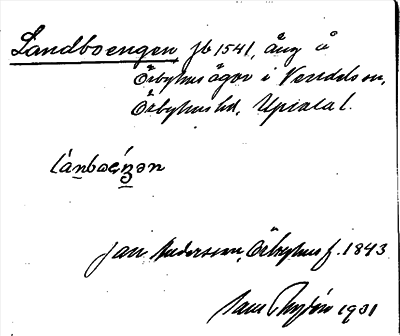 Landboengen, jb 1541, äng å
Örbyhus ägor i Vendels sn,
Örbyhus hd, Upsala l.
Jan Andersson, Örbyhus f. 1843
1931